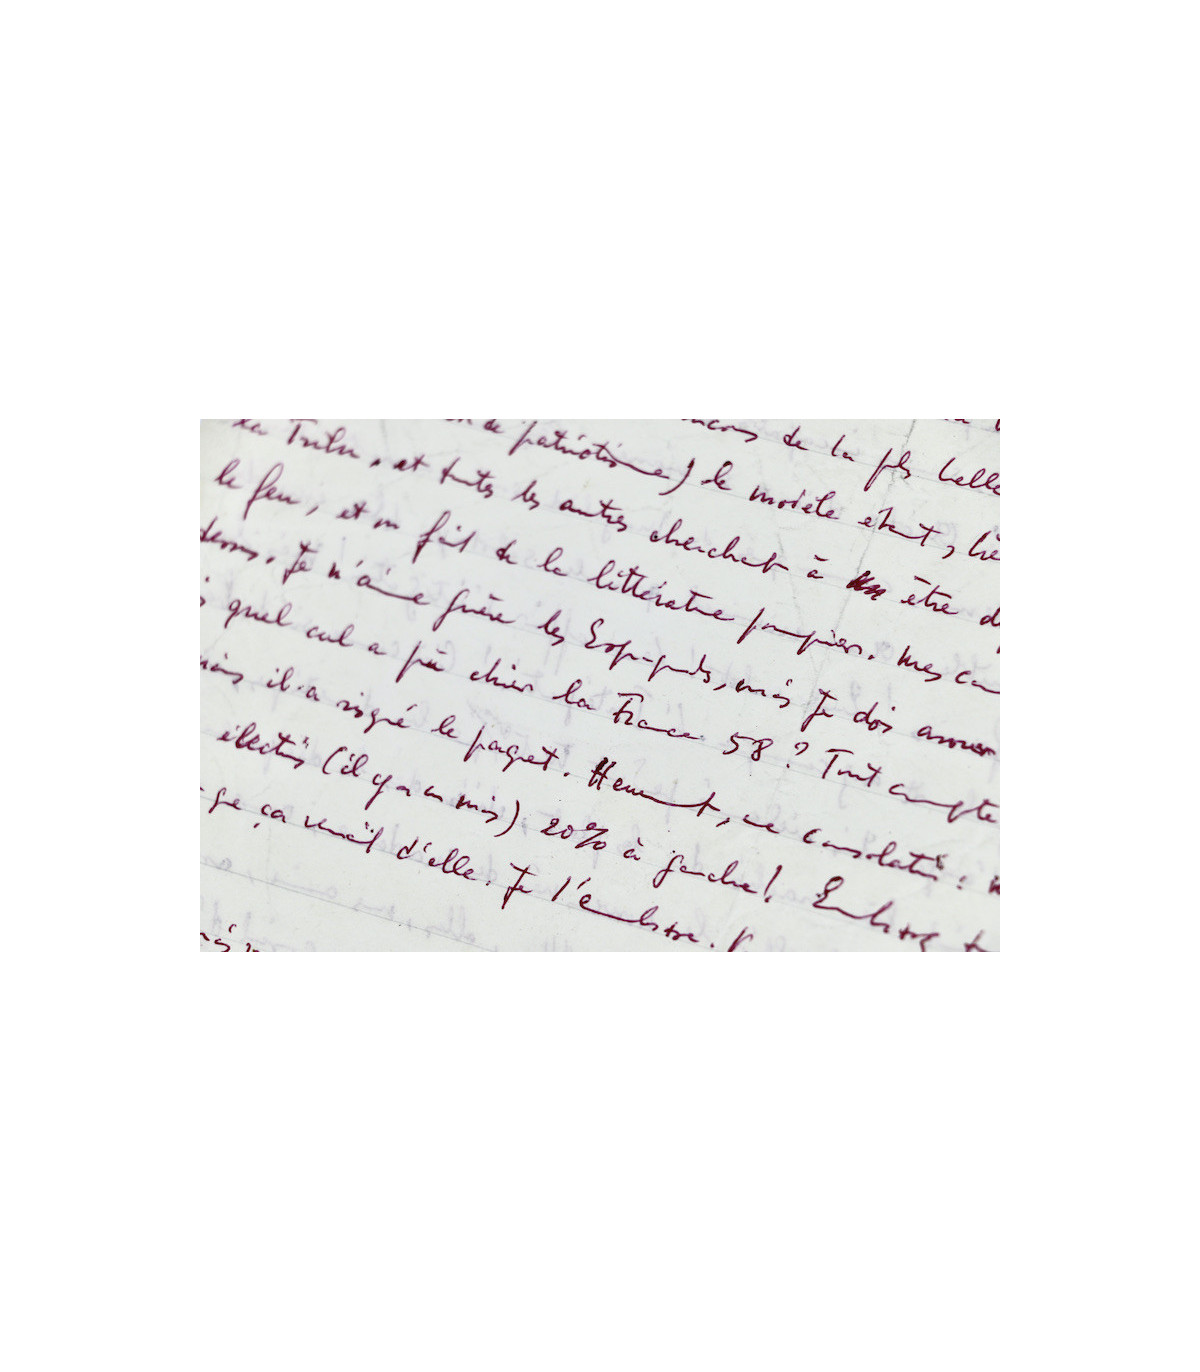 de la plus belle
de patriotisme) le modèle étant,
et toutes les autres cherchent à être
le feu, et on fait de la littérature pompier. Mes
Je n'aime guère les Espagnols, mais je dois avouer
quel cul a pu chier la France 58? Tout compte
il a risqué le paquet. Heureusement, une consolation:
élections (il y a un mois) 20% à gauche! Embrasse
que ça venait d'elle. Je l'embrasse.